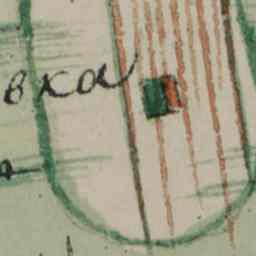 вка